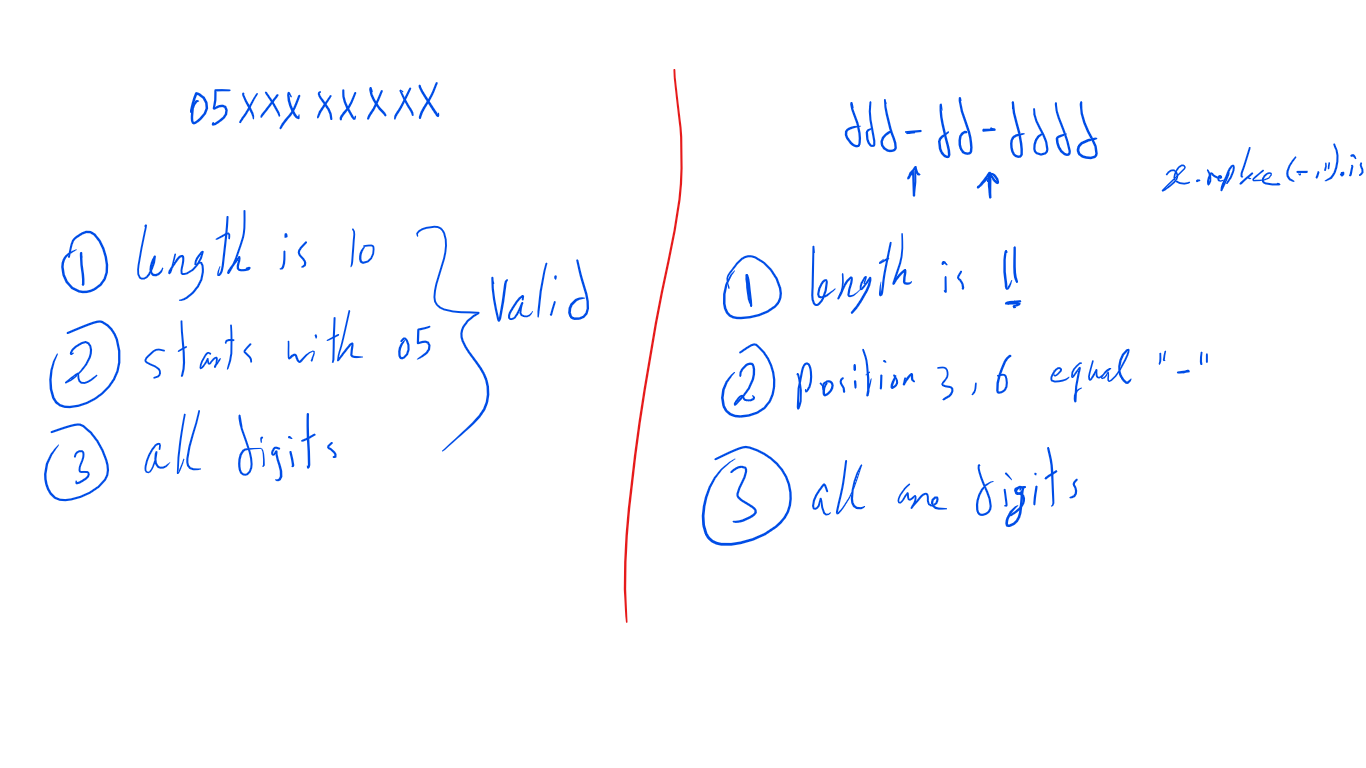 05XXXXXXXX
① length is 10
② starts with 05
③ all digits
Valid
ddd-dd-dddd
x.replace(-,").is
① length is 11
② position 3, 6 equal "-"
③ all are digits